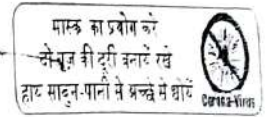 मास्क का प्रयोग करें
दो गज की दूरी बनायें रखें
हाथ साबुन-पानी से अच्छे से धोयें
Corona-Virus